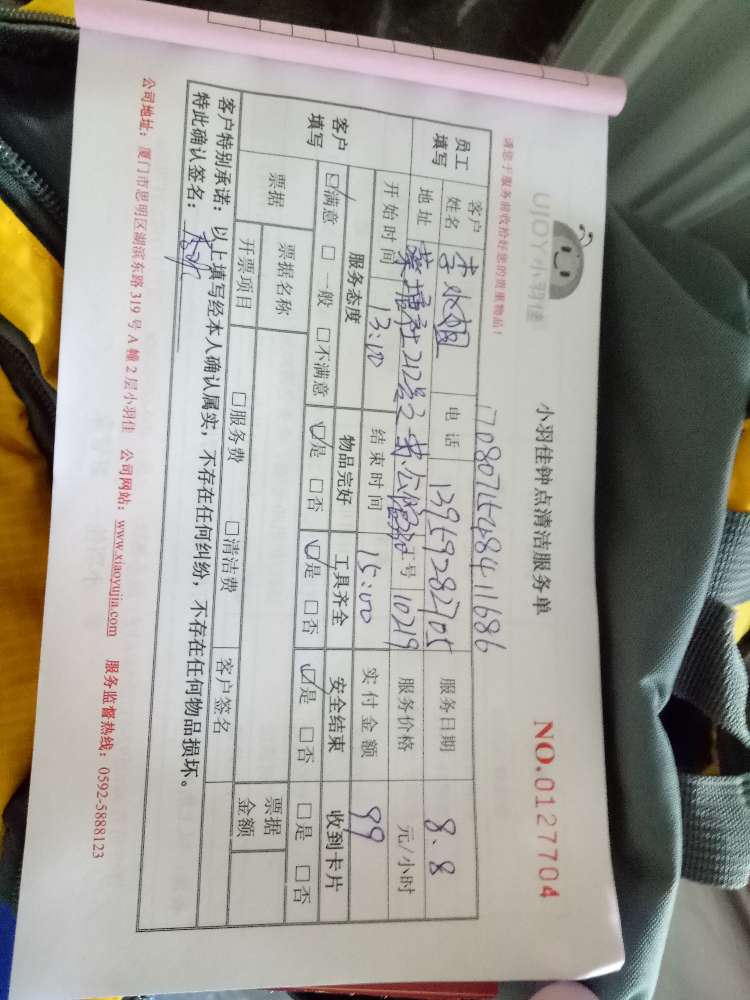 UJOY小羽佳
小羽佳钟点清洁服务单
NO.0127704
请您于服务前收拾好您的贵重物品!
1708071548411686
员工填写 客户姓名 李水 电话 13959282705 服务日期 8.8
地址 蔡塘社212号之一 办公 工号 10219 服务价格 元/小时
开始时间 13:00 结束时间 15:00 实付金额 99
客户填写 服务态度 物品完好 工具齐全 安全结束 收到卡片
☑满意 □一般 □不满意 ☑是 □否 ☑是 □否 ☑是 □否 □是 □否
票据 票据名称 客户签名 票据金额
开票项目 □服务费 □清洁费
客户特别承诺:以上填写经本人确认属实,不存在任何纠纷,不存在任何物品损坏。
特此确认签名:
公司地址:厦门市思明区湖滨东路319号A幢2层小羽佳 公司网站:www.xiaoyujia.com 服务监督热线:0592-5888123